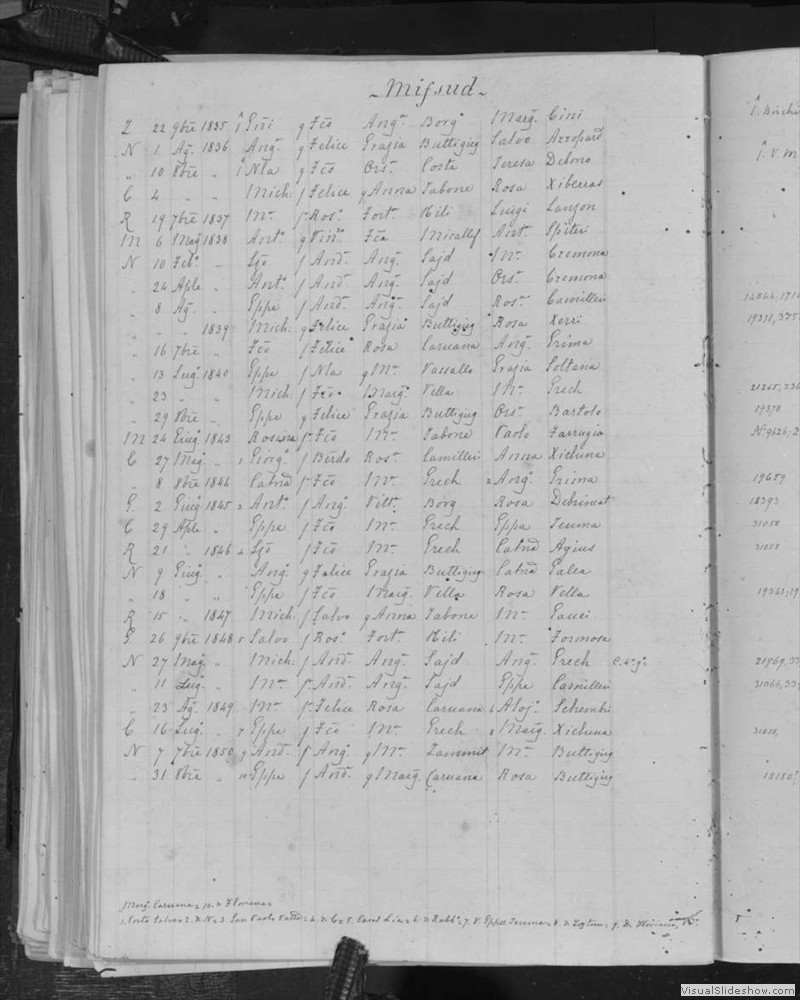 Mifsud
Z 22 9bre 1835 Gni q Fco Ang.a Borg Marg. Cini
N 1 Ag. 1836 Ang. q Felice Grazia Buttigieg Salvo Azzopard
" 10 8bre " Nla q Fco Ors.a Costa Teresa Debono
C 4 " " Mich. f Felice q Anna Tabone Rosa Xiberras
R 19 7bre 1837 M.a f Ros.o Fort. Mili Luigi Lanzon
M 6 Mag 1838 Ant.o q Vin.o Fca Micallef Ant. Spiteri
N 10 Feb. " Gio f And. Ang. Sajd M.a Cremona
" 24 Aple " Ant.o f And. Ang. Sajd Ors.a Cremona
" 8 Ag. " Gppe f And. Ang. Sajd Ros.a Camilleri
" " " 1839 Mich. q Felice Grazia Buttigieg Rosa Xerri
" 16 7bre " Fco f Felice Rosa Caruana Ang. Grima
" 13 Lug. 1840 Gppe f Nla q M.a Vassallo Grazia Soltana
" 23 " " Mich f Fco Marg. Vella M.a Grech
" 29 8bre " Gppe q Felice Grazia Buttigieg Ors.a Bartolo
M 24 Giug. 1843 Rosina f Fco M.a Tabone Paolo Farrugia
C 27 Mag. " Giorg. f Berdo Ros.a Camilleri Anna Xicluna
" 8 8bre 1844 Catna f Fco M.a Grech Ang. Grima
G 2 Giug 1845 Ant.o f Ang. Vitt. Borg Rosa Debrincat
C 29 Aple " Gppe f Fco M.a Grech Gppa Teuma
R 21 " 1846 Gio f Fco M.a Grech Catna Agius
N 9 Giug. " Ang. q Felice Grazia Buttigieg Catna Galea
" 18 " " Gppe f Fco Marg. Vella Rosa Vella
R 15 " 1847 Mich f Salvo q Anna Tabone M.a Gauci
G 26 9bre 1848 Salvo f Ros.o Fort. Mili M.a Formosa
N 27 Mag. " Mich. f And. Ang. Sajd Ang. Grech
" 11 Lug. " M.a f And. Ang. Sajd Gppe Camilleri
" 23 Ag. 1849 M.a f Felice Rosa Caruana Aloj. Schembri
C 16 Lug. " Gppe f Fco M.a Grech Marg. Xicluna
N 7 7bre 1850 And. f Ang. q M.a Zammit M.a Buttigieg
" 31 8bre " Gppe f And. q Marg. Caruana Rosa Buttigieg
19378
19659
18393
31058
VisualSlideshow.com